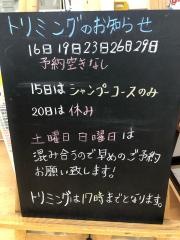 トリミングのお知らせ
16日19日23日26日29日
予約空きなし
15日はシャンプーコースのみ
20日は休み
土曜日日曜日は
混み合うので早めのご予約
お願い致します!
トリミングは17時までとなります。